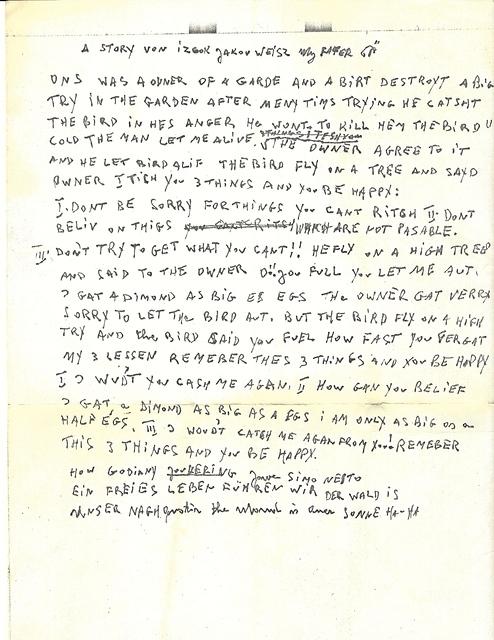 A STORY VON IZEOK JAKOV WEISZ My FATER
ONS WAS A OWNER OF A GARDE AND A BIRT DESTROYT A BIG
TRY IN THE GARDEN AFTER MENY TIMS TRYING HE CATSHT
THE BIRD IN HES ANGER HE WONT TO KILL HEM THE BIRD
COLD THE MAN LET ME ALIVE THE OWNER AGREE TO IT
AND HE LET BIRD ALIF THE BIRD FLY ON A TREE AND SAYD
OWNER I TISH YOU 3 THINGS AND YOU BE HAPPY:
I. DONT BE SORRY FOR THINGS YOU CANT RITSH II. DONT
BELIV ON THIGS WHICH ARE NOT PASABLE.
III. DON'T TRY TO GET WHAT YOU CANT!! HE FLY ON A HIGH TREE
AND SAID TO THE OWNER O!! you FULL you LET ME AUT.
I GAT A DIMOND AS BIG ES EGS THE OWNER GAT VERRY
SORRY TO LET THE BIRD AUT. BUT THE BIRD FLY ON A HIGH
TRY AND the BIRD SAID YOU FUEL HOW FAST YOU FERGAT
MY 3 LESSEN REMEBER THES 3 THINGS AND YOU BE HAPPY
I I WUDT YOU CASH ME AGAIN. II HOW CAN YOU BELIEF
I GAT a DIMOND AS BIG AS A EGS i AM ONLY AS BIG as a
HALF EGS. III I WOUDT CATCH ME AGAN FROM YOU!! REMEBER
THIS 3 THINGS AND YOU BE HAPPY.
HOW GODIANY SIMO NESTO
EIN FREIES LEBEN FÜHREN WIR DER WALD IS
UNSER NAGHQuatir the Mound is auer SONNE HA-HA